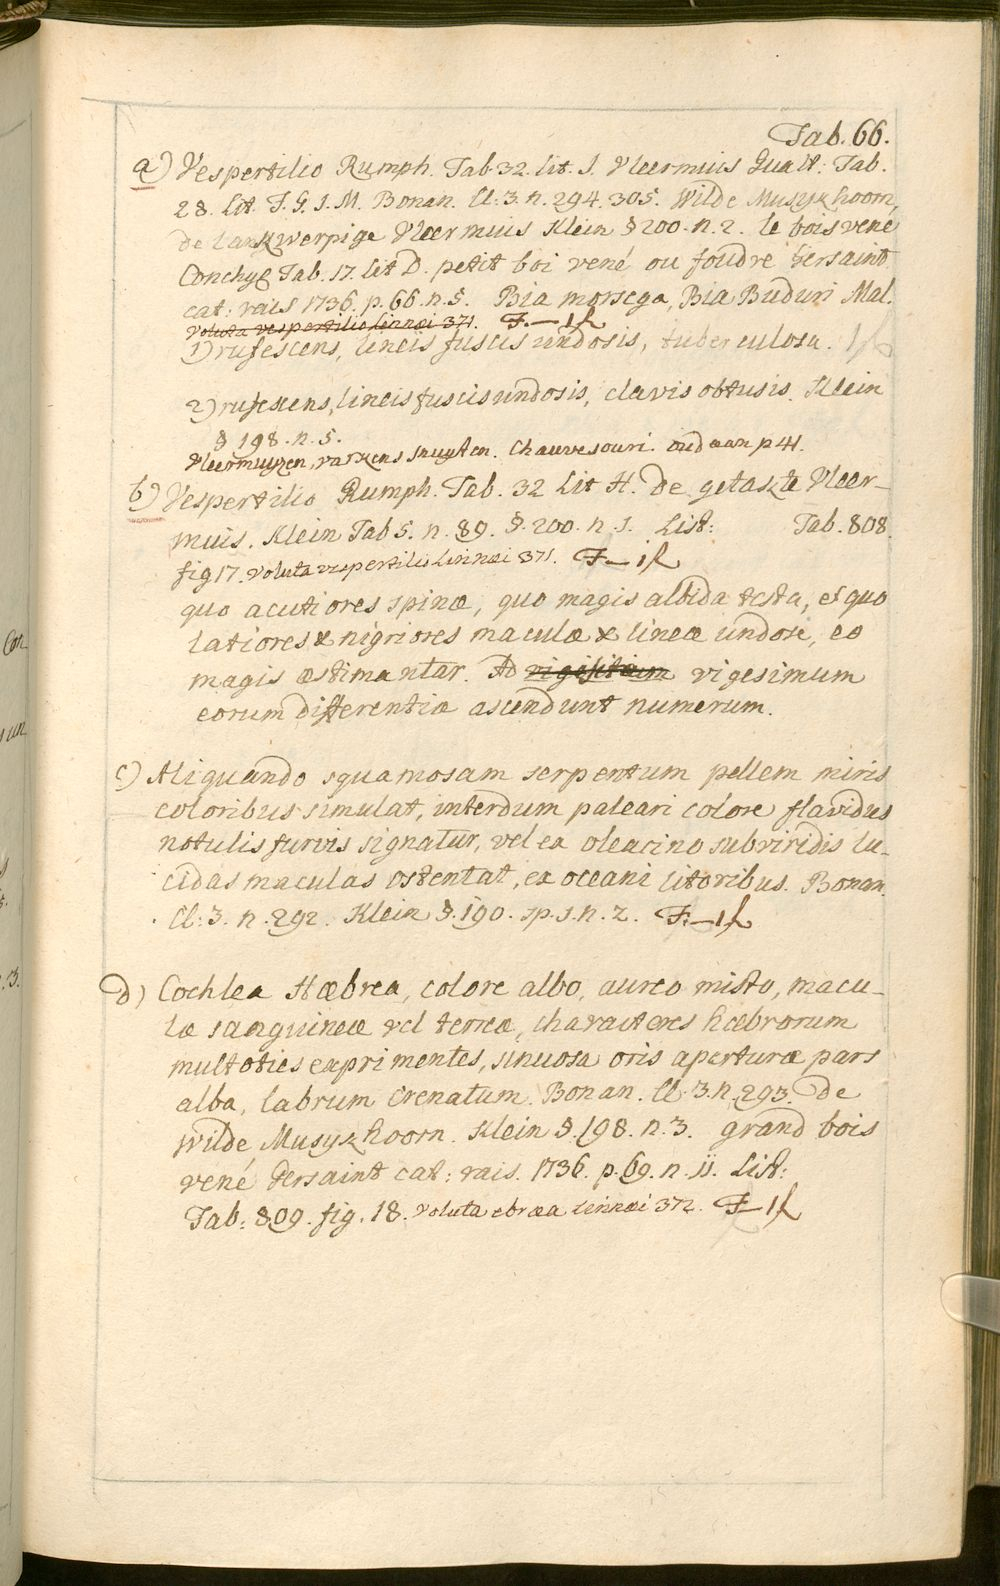 Tab. 66.
a) Vespertilio Rumph. Tab. 32. lit. I. Vleermuis Gualt: Tab.
28. Lit. F. G. I. M. Bonan. Cl: 3. n. 294. 305. Wilde Musykhoorn,
de lankwerpige Vleermuis Klein § 200. n. 2. le bois vené
Conchyl Tab. 17. lit D. petit boi vené ou foudre Gersaint
cat: rais 1736. p. 66. n. 5. Bia morsega, Bia Buduri Mal.
Voluta vespertilio Linnæi 371. F. — 1 fl
1) rufescens, lineis fuscis undosis, tuberculosa.
2) rufescens, lineis fuscis undosis, clavis obtusis. Klein
§ 198. n. 5.
Vleermuyzen, varkens snuyten. Chauvesouri. oudaan p 41.
b) Vespertilio Rumph. Tab. 32 Lit H. De getakte Vleer-
muis. Klein Tab 5. n. 89. §. 200. n. 1. List: Tab. 808.
fig 17. Voluta vespertilio Linnæi 371. F — 1 fl
quo acutiores spinæ, quo magis albida testa, et quo
latiores & nigriores maculæ & lineæ undosæ, eo
magis æstimantur. Ad vigesimum
eorum differentiæ ascendunt numerum.
c) Aliquando squamosam serpentum pellem miris
coloribus simulat, interdum paleari colore flavidus
notulis furvis signatur, vel ex oleacino subviridis lu-
cidas maculas ostentat, ex oceani litoribus. Bonan.
Cl: 3. n. 292. Klein §. 190. sp. 1. n. 2. F: — 1 fl
d) Cochlea Hæbrea, colore albo, aureo misto, macu-
læ sanguineæ vel terreæ, characteres hæbrorum
multoties exprimentes, sinuosa oris aperturæ pars
alba, labrum crenatum. Bonan. Cl: 3. n. 293. De
Wilde Musykhoorn. Klein §. 198. n. 3. grand bois
vené Gersaint cat: rais. 1736. p. 69. n. 11. List:
Tab: 809. fig. 18. Voluta ebræa Linnæi 372. F — 1 fl